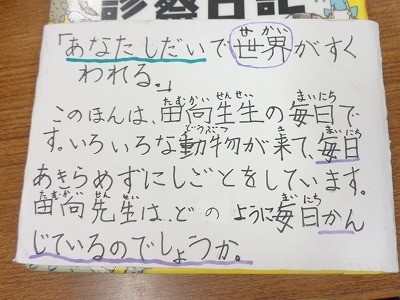 診察日記
せかい
「あなたしだいで世界がすく
われる。」
たむかいせんせい まいにち
このほんは、田向生生の毎日で
どうぶつ き まいにち
す。いろいろな動物が来て、毎日
あきらめずにしごとをしています。
たむかいせんせい まいにち
田向先生は、どのように毎日かん
じているのでしょうか。